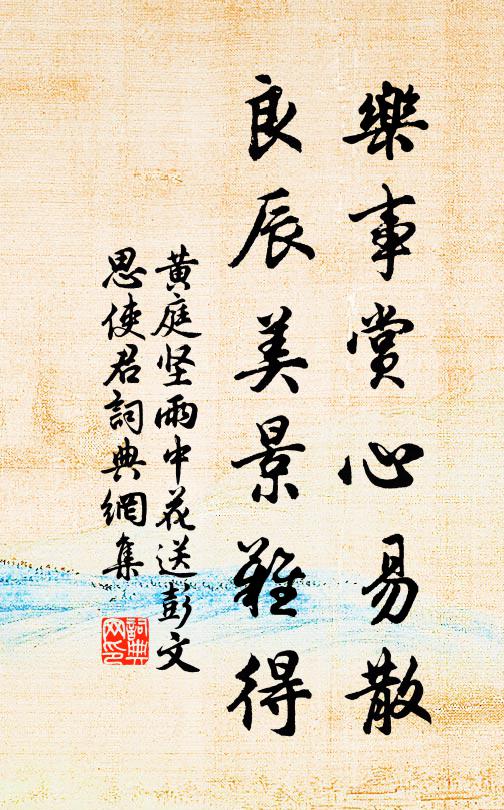 樂事賞心易散
良辰美景難得
黄庭坚雨中花送彭文
思使君詞典網集
詞典网印